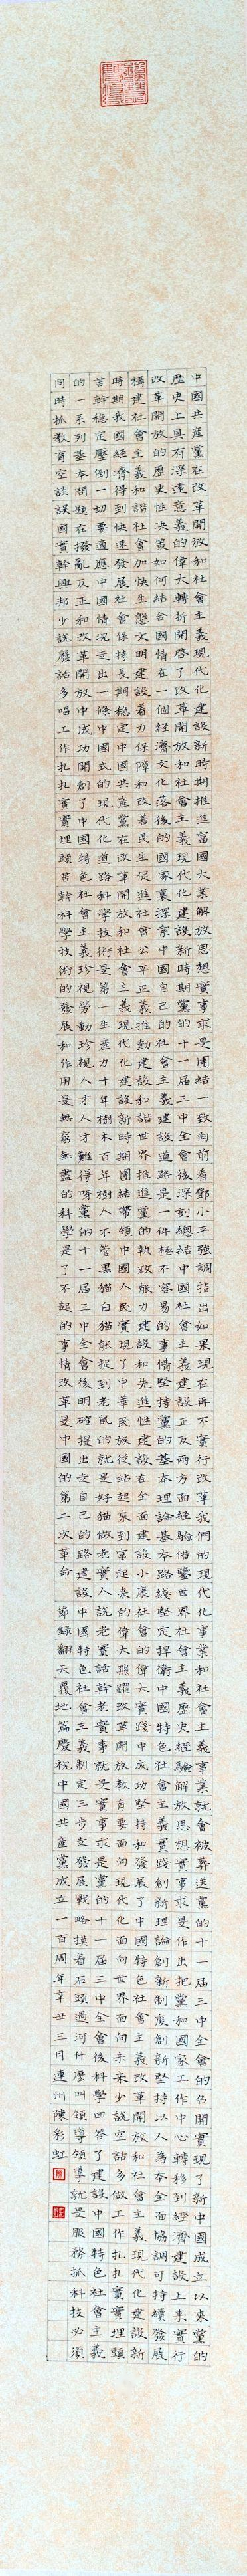 中國共產黨在改革開放和社會主義現代化建設新時期推進富國大業解放思想實事求是團結一致向前看鄧小平強調指出如果現在再不實行改革我們的現代化事業和社會主義事業就會被葬送黨的十一屆三中全會的召開實現了新中國成立以來黨的
歷史上具有深遠意義的偉大轉折開啓了改革開放和社會主義現代化建設新時期黨的十一屆三中全會後深刻總結中國社會主義建設正反兩方面經驗借鑒世界社會主義歷史經驗解放思想實事求是作出把黨和國家工作中心轉移到經濟建設上來實行
改革開放的歷史性決策如何結合國情在一個經濟文化落後的國家裏探索中國自己的社會主義建設道路是一件極不容易的事情堅持黨的基本理論基本路綫堅定捍衛中國特色社會主義實踐創新理論創新制度創新堅持以人為本全面協調可持續發展
構建社會主義和諧社會加快生態文明建設着力保障和改善民生促進社會公平正義推動建設和諧世界推進黨的執政能力建設和先進性建設在全面建設小康社會的偉大實踐中成功堅持和發展了中國特色社會主義改革開放和社會主義現代化建設新
時期我國經濟得到快速發展社會保持長期穩定中國共產黨在改革開放和社會主義現代化建設新時期團結帶領中國人民實現了中華民族從站起來到富起來的偉大飛躍改革開放教育要面向現代化面向世界面向未來少說空話多做工作扎扎實實埋頭
苦幹穩定壓倒一切要適應中國情況走出一條中國式的現代化道路科學技術是第一生產力十年樹木百年樹人不管黑貓白貓能捉到老鼠的就是好貓做老實人說老實話幹老實事就是實事求是黨的十一屆三中全會後科學四答領了建設中國特色社會主義
的一系列基本問題在撥亂反正和改革開放中成功開創了中國特色社會主義珍視勞動珍視人才人才難得呀黨的十一屆三中全會後明確提出走自己的路建設中國特色社會主義制定三步走發展戰略摸着石頭過河什麼叫領導領導就是服務抓科技必須
同時抓教育空談誤國實幹興邦少說廢話多唱工作扎扎實實埋頭苦幹科學技術的發展和作用是無窮無盡的科學是了不起的事情改革是中國的第二次革命 節錄翻天覆地篇慶祝中國共產黨成立一百周年辛丑三月連州陳彩虹